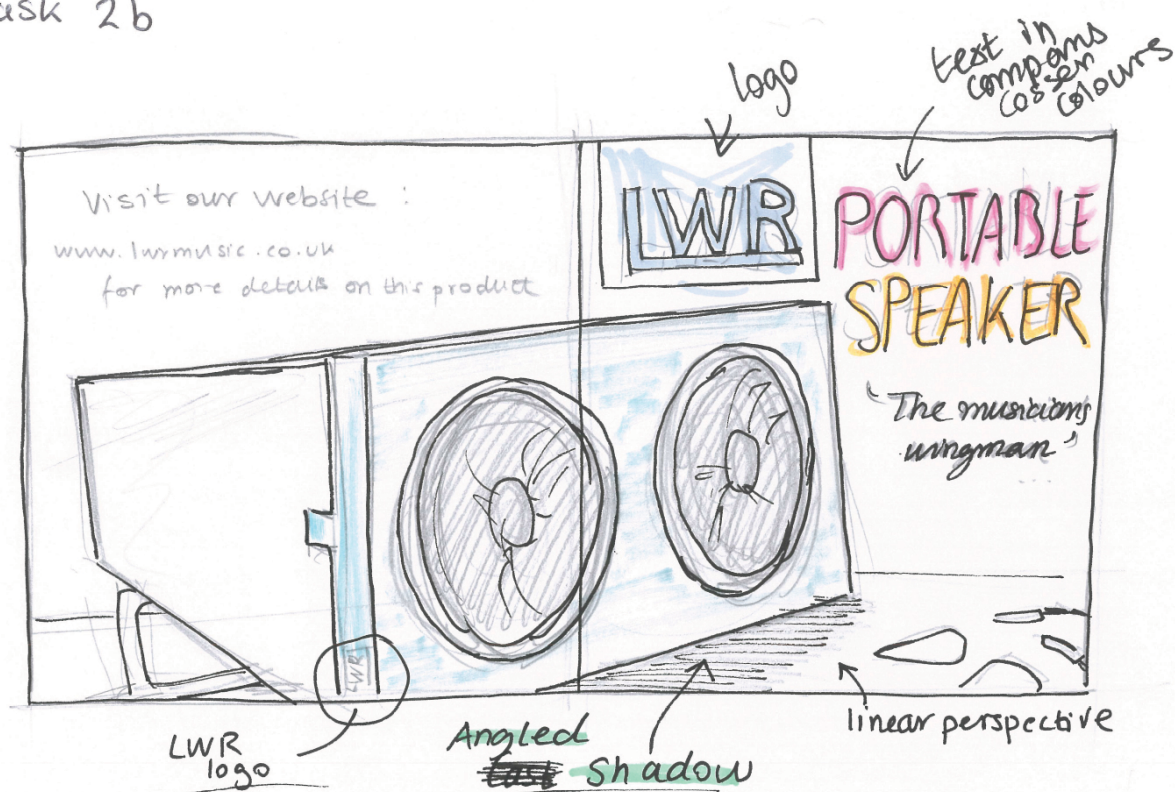 ask 2b
logo
text in
companys
cosen
colours
Visit our website :
www.lwrmusic.co.uk
for more details on this product
LWR
PORTABLE
SPEAKER
'The musicians
wingman'
LWR
LWR
logo
Angled
Shadow
linear perspective